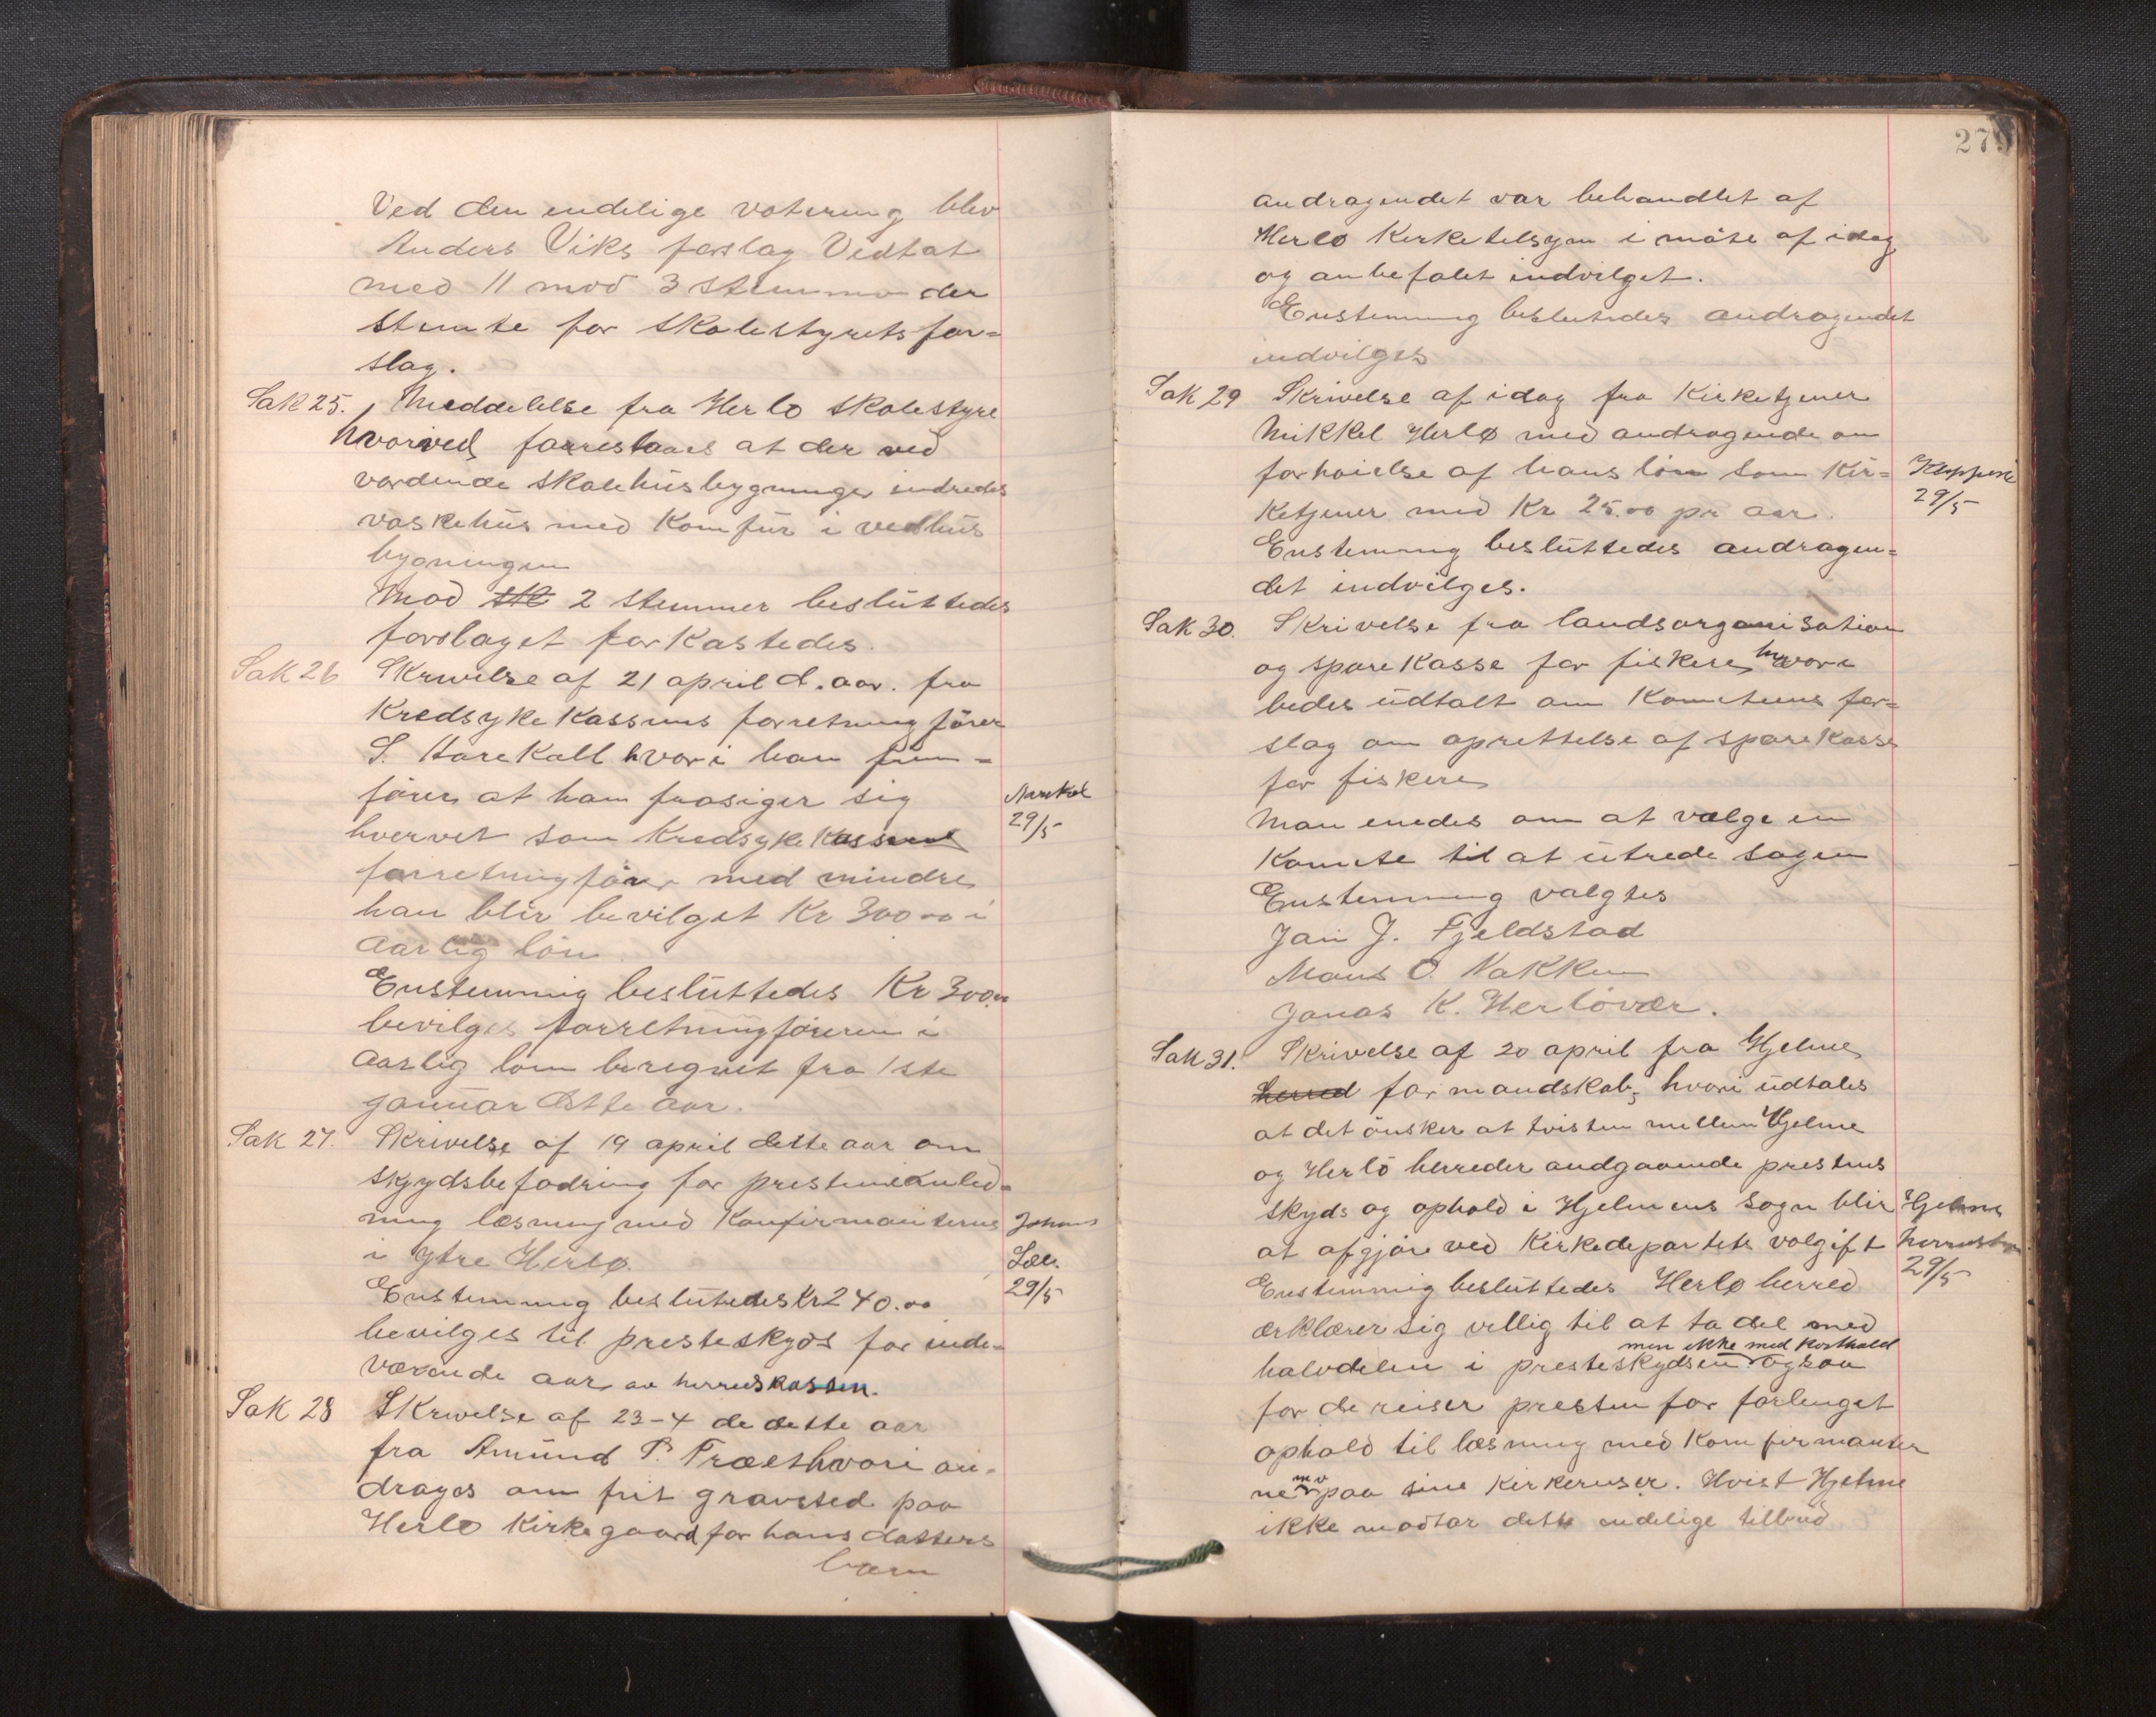 Ved den endelige votering blev
Anders Viks forslag Vedtat
med 11 mod 3 stemmer der
stemte for skolestyrets for=
slag.
Sak 25. Meddelelse fra Herlo skolestyre
hvorved forreslaaes at der ved
vordende skolehusbygninger indredes
vaskehus med Komfur i vedhus
bygningen
Mod 2 stemmer besluttedes
forslaget forkastedes.
Sak 26 Skrivelse af 21 april d. aar. fra
Kredsykekassens forretningfører
S. Harekall hvori han frem=
fører at han frasiger sig
hvervet som Kredsykekassens
forretningfører med mindre
han blir bevilget Kr 300 00 i
aarlig løn.
Enstemmig besluttedes Kr 300.00
bevilges forretningføreren i
aarlig løn beregnet fra 1ste
januar dette aar.
Narekal
29/5
Sak 27. Skrivelse af 19 april dette aar om
skydsbefodring for presten i anled=
ning læsning med Konfirmanterne
i ytre Herlø.
Enstemmig beslutedes Kr 240.00
bevilges til presteskyds for inde=
værende aar av herredskassen.
29/5
Sak 28 Skrivelse af 23-4 de dette aar
fra Amund P. Træet hvori an=
drages om frit gravsted paa
Herlo Kirkegaard for hans datters
barn
279
andragendet var behandlet af
Herlo Kirketilsyn i møte af idag
og anbefalet indvilget.
Enstemmig beslutedes andragendet
indvilges
Sak 29 Skrivelse af idag fra Kirketjener
Mikkel Herlø med andragende om
forhøielse af hans løn som Kir=
ketjener med Kr 25.00 pr aar.
Enstemmig besluttedes andragen=
det indvilges.
29/5
Sak 30. Skrivelse fra landsorganisation
og sparekasse for fiskere, hvori
bedes udtalt om Komiteens for=
slag om oprettelse af sparekasse
for fiskere
Man enedes om at vælge en
Komite til at utrede sagen
Enstemmig valgtes
Jan J. Fjeldstad
Mons O. Nakken
Jonas K. Herløvær.
Sak 31. Skrivelse af 20 april fra Hjelme
herred formandskab, hvori udtales
at det ønsker at tvisten mellem Hjelme
og Herlö herreder angaaende prestens
skyds og ophold i Hjelmens sogn blir
at afgjøre ved Kirkedepartets volgift
Enstemmig besluttedes Herlø herred
erklærer sig villig til at ta del med
halvdelen i presteskydsen men ikke med kosthold ogsaa
for de reiser presten for forlenget
ophold til læsning med Komfirmanter
ne mv paa sine Kirkereiser. Hvist Hjelme
ikke modtar dette endelige tilbud
Hjelme
29/5